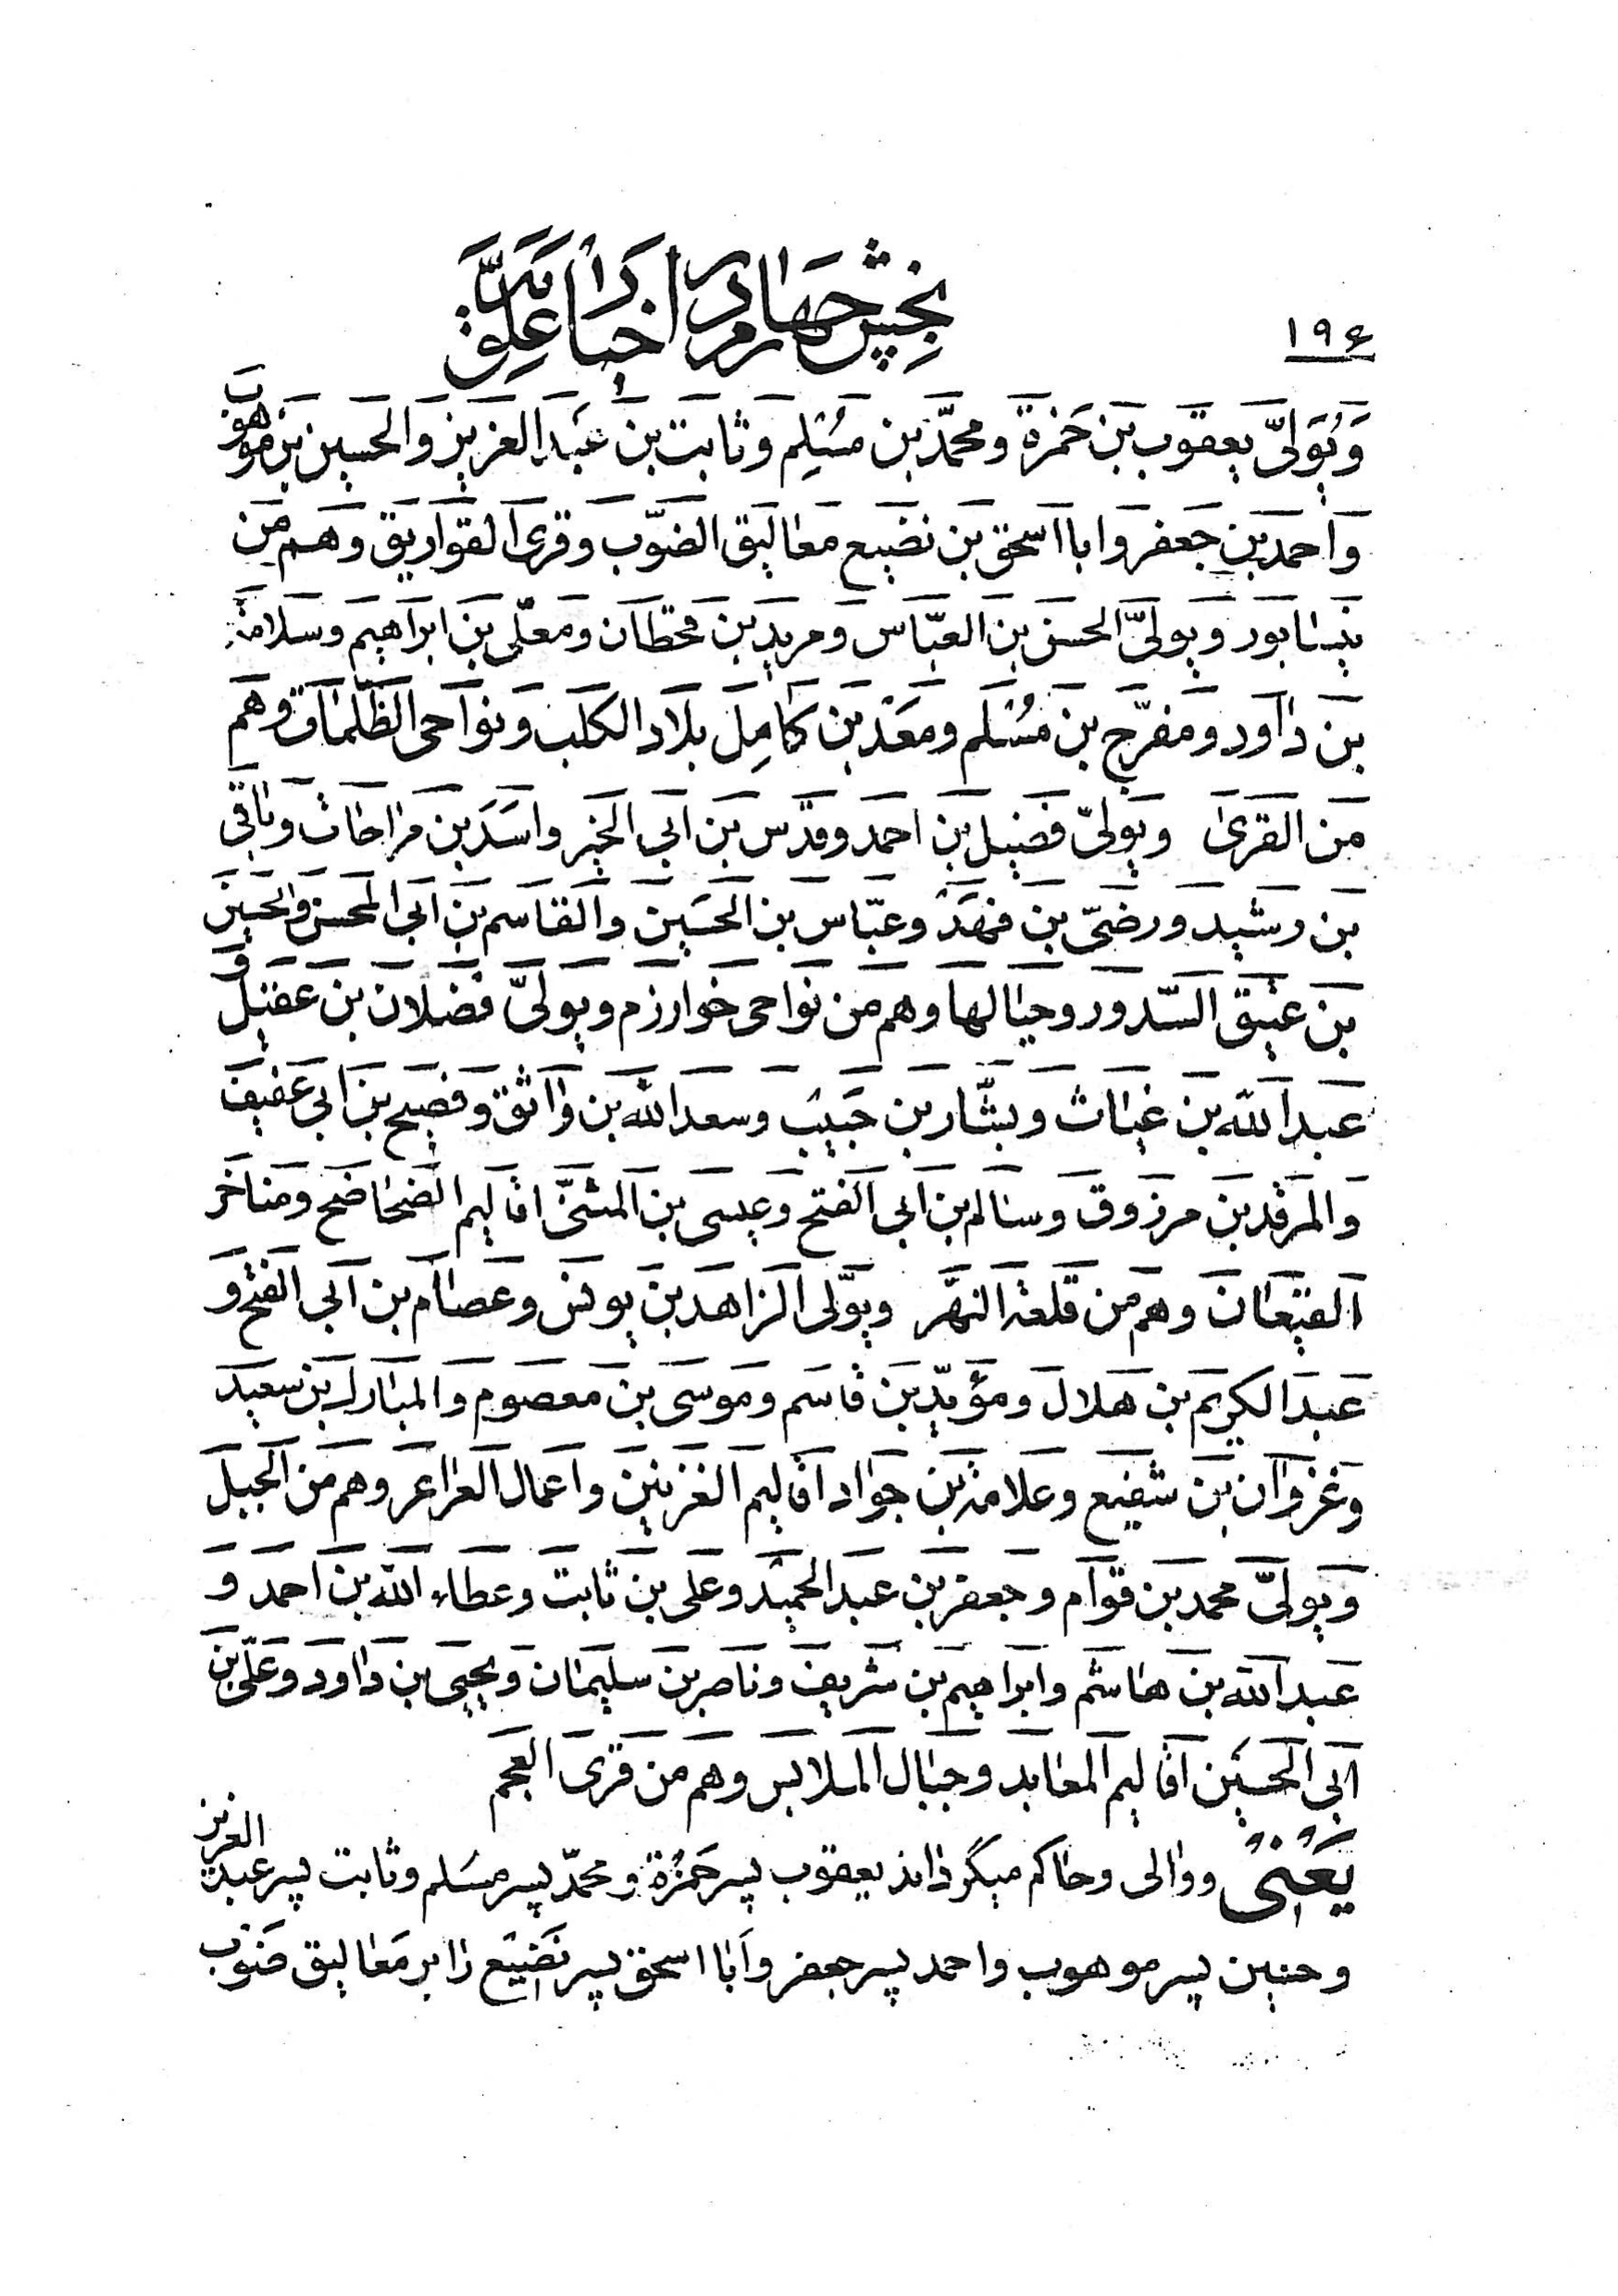 ۱۹۶
بخش چهارم در اخبار علویه
وَيُوَلّى يعقوب بن حَمزة ومحمّد بن مُسْلِم وثابت بن عَبد العزيز والحسين بن موهوب
واحمد بن جَعفر وابا اسحق بن نضيع مَعاليق الضوّب وقرى القواريق وهم من
نيسابور ويولىّ الحسن بن العبّاس ومريد بن قحطان ومعلّى بن ابراهيم وسلامة
بن داود ومفرّج بن مُسْلم ومَعَدْ بن كامِل بلاد الكلب ونواحى الظّلمات وهم
من القرى ويولىّ فضيل بن احمد وقدّس بن ابى الخير واسَد بن مراحات وباقى
بن رشيد ورضىّ بن فهَدْ وعبّاس بن الحسَين والقاسم بن ابى المحسن والحسين
بن عتيق السّدور وجبالها وهم من نواحى خوارزم ويولىّ فضلان بن عقيل و
عبد الله بن غياث وبشّار بن حَبيب وسعد الله بن واثق وفصيح بن ابى عفيف
والمرقد بن مرزوق وسالم بن ابى الفتح وعيسى بن المثنّى اقاليم الضحاضح ومناخر
القيعان وهم من قلعة النهر ويولّى الزاهد بن يونس وعصام بن ابى الفتح و
عبد الكريم بن هلال ومؤيّد بن قاسم وموسى بن معصوم والمبارك بن سعيد
وغزوان بن شفيع وعلامة بن جواد اقاليم الغزنين واعمال العراعر وهم من الجبل
ويولىّ محمد بن قوام وجعفر بن عبد الحميد وعلى بن ثابت وعطاء الله بن احمد و
عبد الله بن هاشم وابراهيم بن شريف وناصر بن سليمان ويحيى بن داود وعلىّ بن
ابى الحسين اقاليم المعابد وجبال الملابس وهم من قرى العجم
يَعْنى ووالى وحاكم ميگرداند يعقوب پسر حَمْزة ومحمّد پسر مسَلم وثابت پسر عبد العزيز
وحنين پسر موهوب واحمد پسر جعفر وابا اسحق پسر نَضيَع را بر مَعاليق ضوب